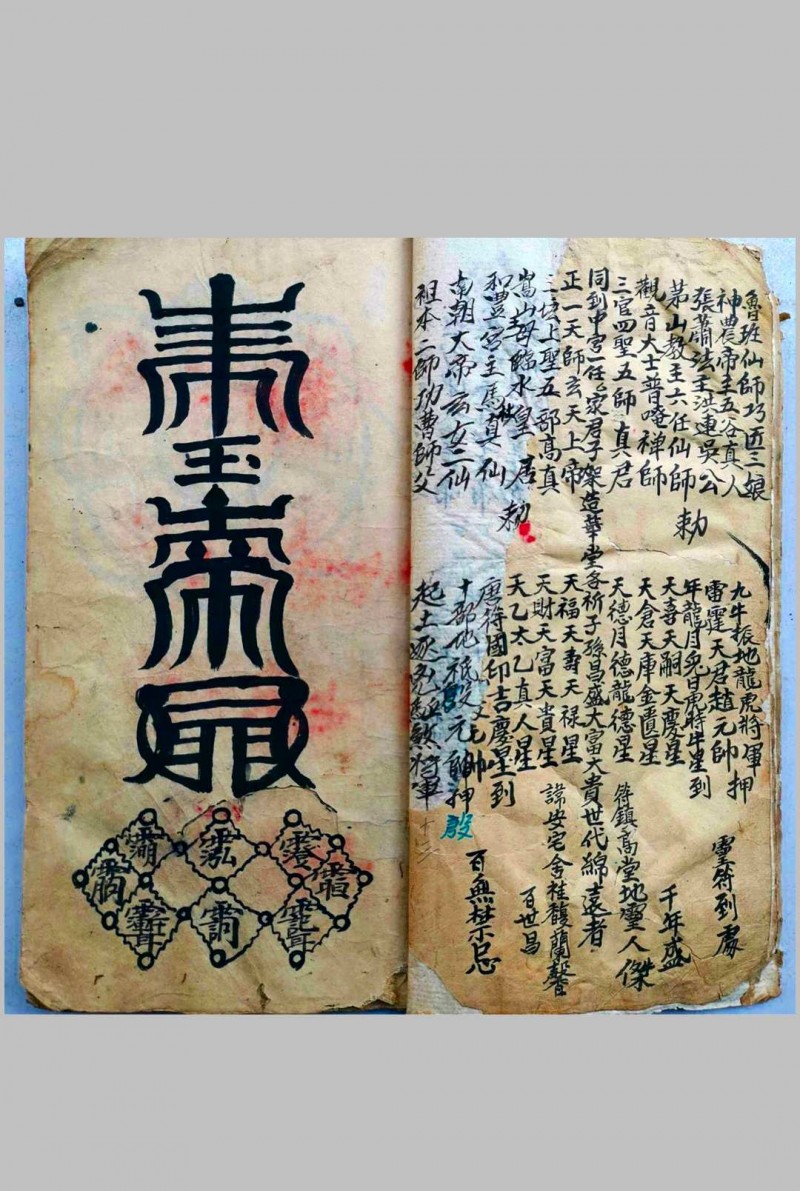 魯班仙師巧匠三娘
神農帝主五谷真人
張蕭法主洪連吳公
茅山教主六任仙師
勅
觀音大士普唵禪師
三官四聖五師真君
同到中宮一任家君子架造華堂各祈子孫昌盛大富大貴世代綿遠者
正一天師玄天上帝
上聖五部高真
嵩山母臨水皇君
和豐宮主馬真仙
勅
南朝大帝玄女二仙
祖本二師功曹師父
九牛振地龍虎將軍押
雷霆天君趙元帥
年龍月兔日虎時牛星到
天喜天嗣天慶星
天倉天庫金匱星
天德月德龍德星
天福天壽天禄星
天財天富天貴星
天乙太乙真人星
唐符國印吉慶星到
十部地祇元帥押
殷
起土煞將軍
靈符到處
千年盛
符鎮高堂地靈人傑
諱安宅舍桂馥蘭馨
百世昌
百無禁忌
玉
帝